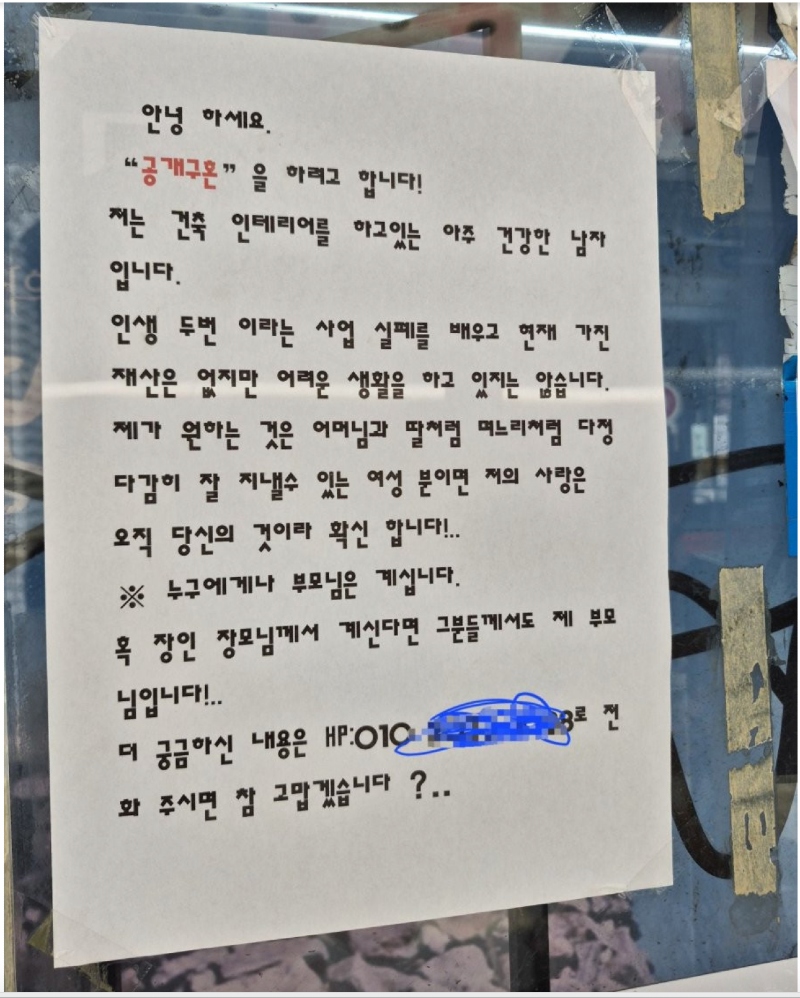 안녕 하세요.
“공개구혼” 을 하려고 합니다!
저는 건축 인테리어를 하고있는 아주 건강한 남자
입니다.
인생 두번 이라는 사업 실폐를 배우고 현재 가진
재산은 없지만 어려운 생활을 하고 있지는 않습니다.
제가 원하는 것은 어머님과 딸처럼 며느리처럼 다정
다감히 잘 지낼수 있는 여성 분이면 저의 사랑은
오직 당신의 것이라 확신 합니다!..
※ 누구에게나 부모님은 계십니다.
혹 장인 장모님께서 계신다면 그분들께서도 제 부모
님입니다!..
더 궁금하신 내용은 HP:010 8로 전
화 주시면 참 고맙겠습니다 ?..